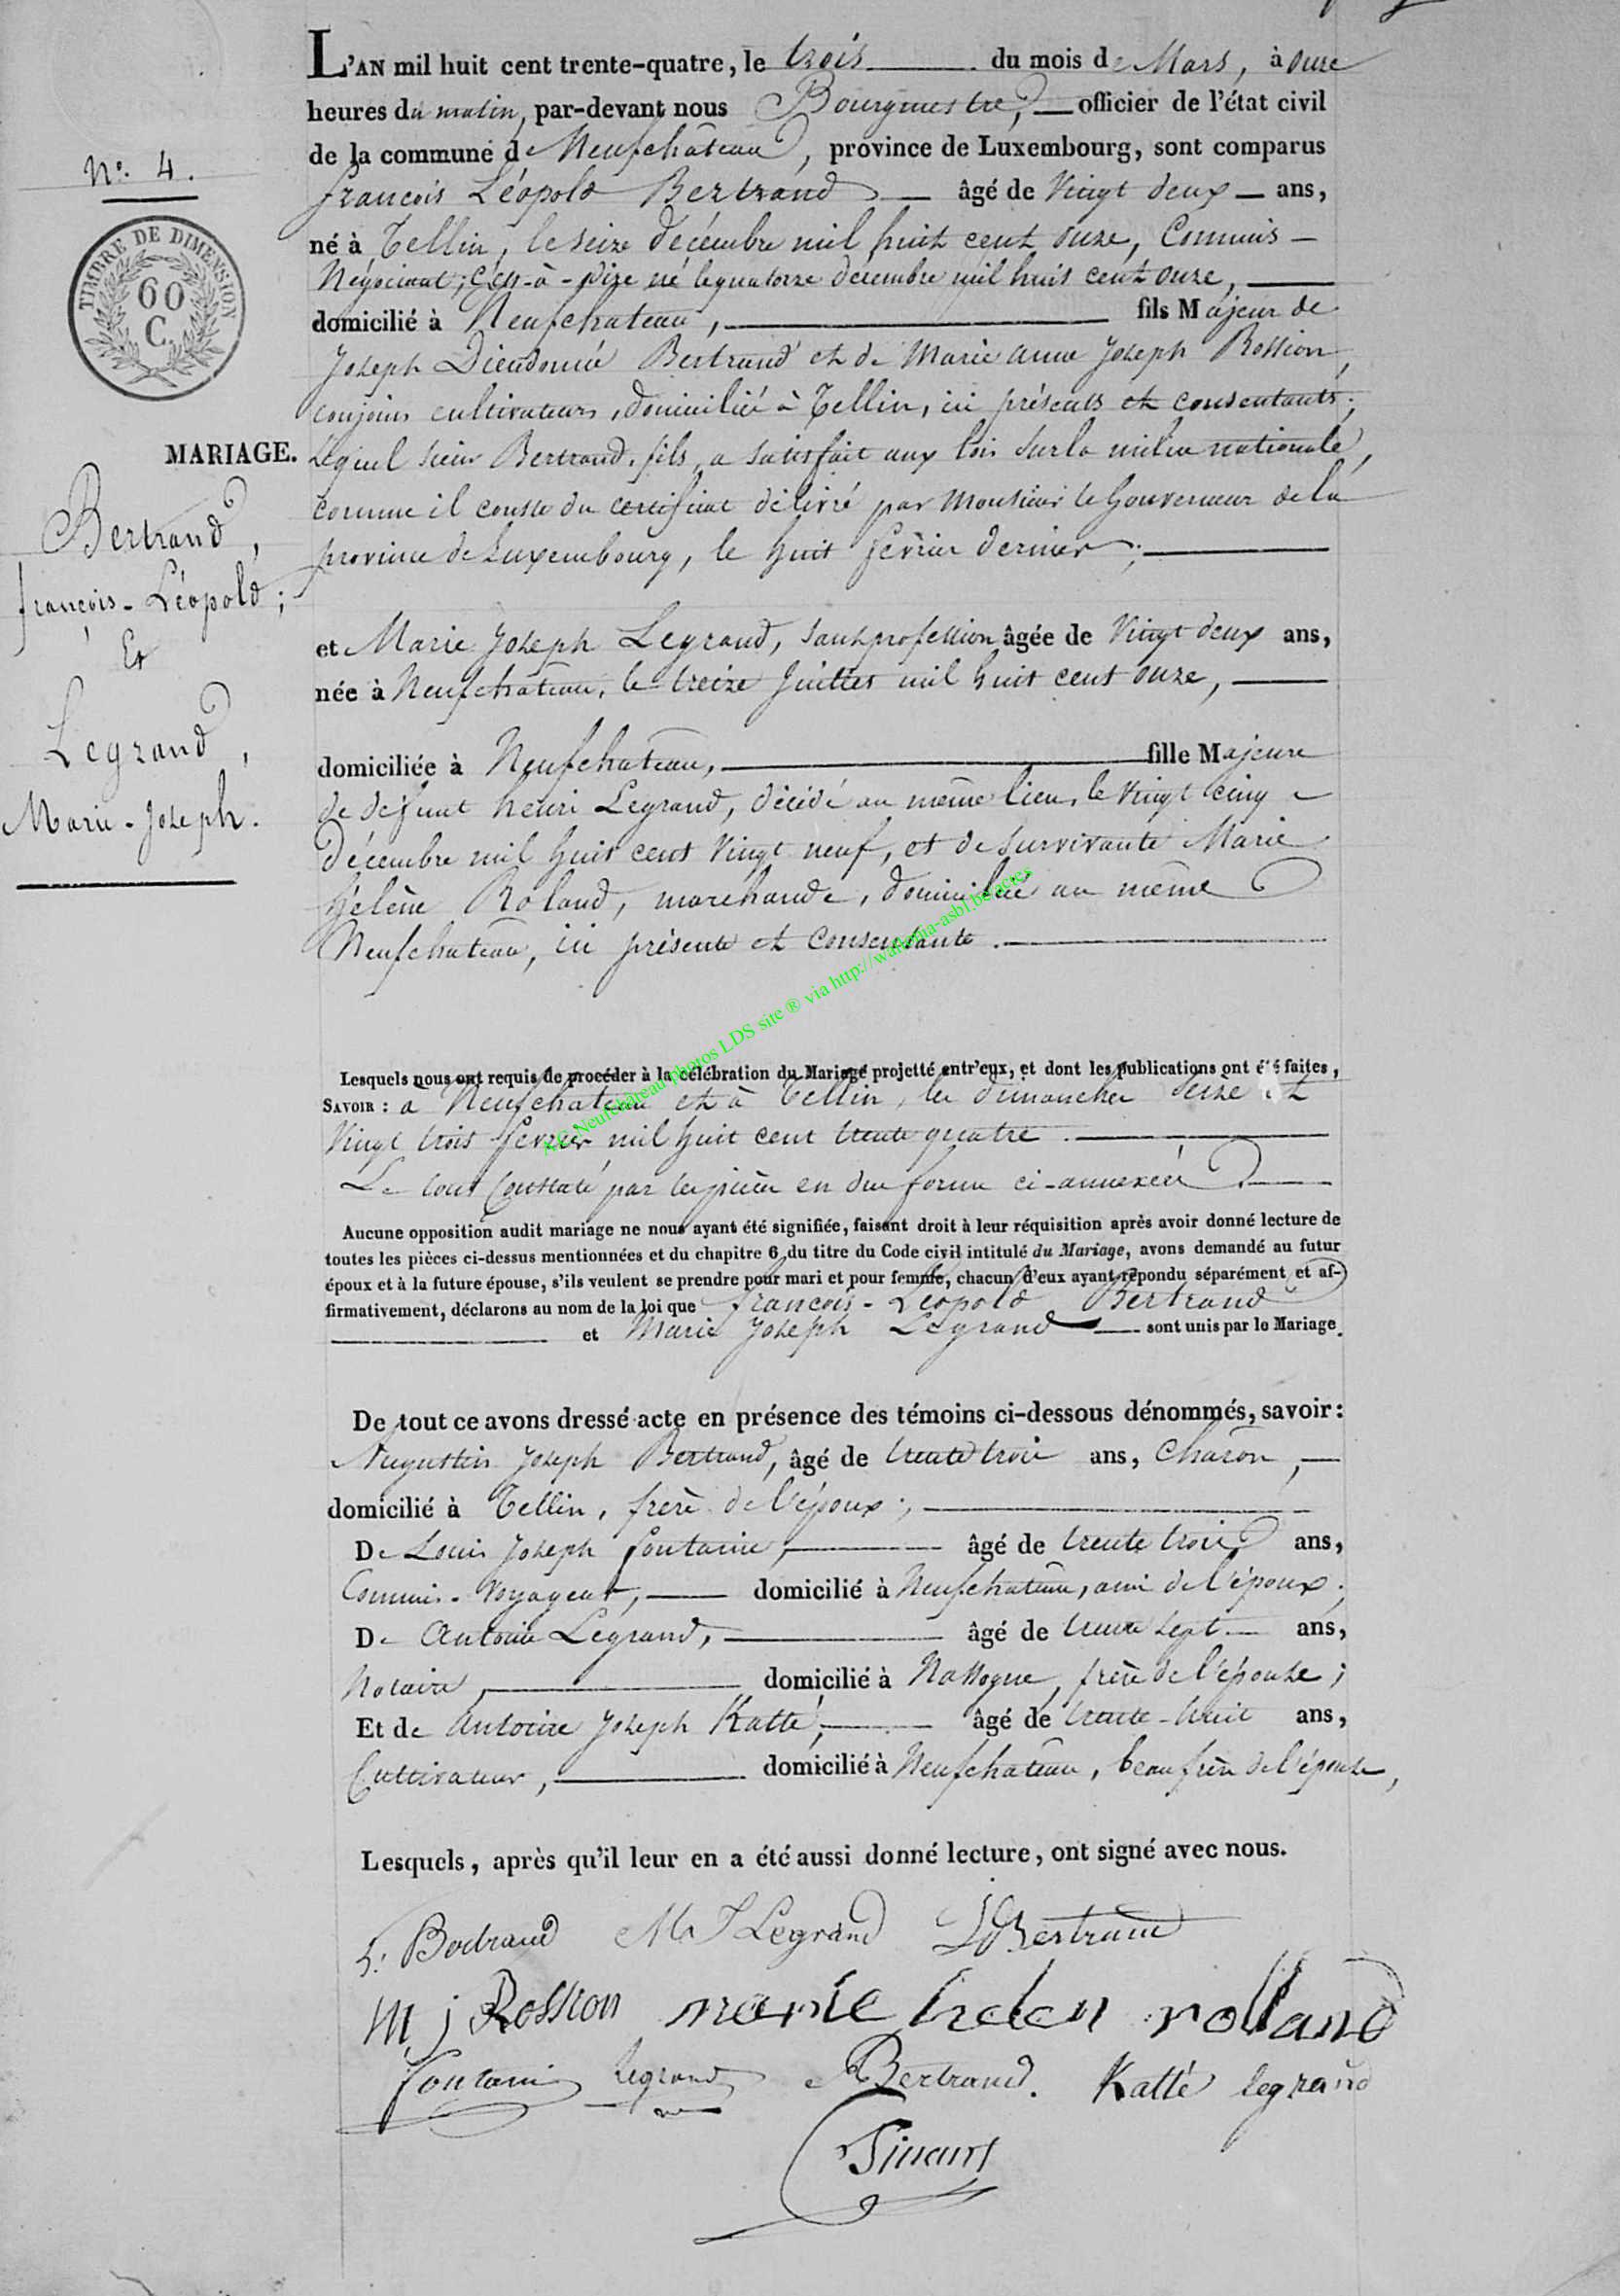 L'AN mil huit cent trente-quatre, le trois du mois de Mars, à onze
heures du matin, par-devant nous Bourgmestre, officier de l'état civil
de la commune de Neufchâteau, province de Luxembourg, sont comparus
françois Léopold Bertrand âgé de Vingt deux ans,
né à Tellin, le seize décembre mil huit cent onze, Commis-
Négociant; C'est-à-dire né le quatorze décembre mil huit cent onze,
domicilié à Neufchateau, fils Majeur de
Joseph Dieudonné Bertrand et de Marie anne Joseph Rossion,
conjoins cultivateurs, domiciliés à Tellin, ici présents et consentants;
Lequel sieur Bertrand, fils, a satisfait aux lois sur la milice nationale,
comme il conste du certificat délivré par Monsieur le Gouverneur de la
province de Luxembourg, le huit février dernier;
et Marie Joseph Legrand, sans profession âgée de Vingt deux ans,
née à Neufchâteau, le treize Juillet mil huit cent onze,
domiciliée à Neufchateau, fille Majeure
de defunt henri Legrand, décédé au même lieu, le Vingt cinq
Décembre mil huit cent Vingt neuf, et de survivante Marie
hélène Roland, marchande, domiciliée au même
Neufchateau, ici présente et consentante.
N°. 4.
TIMBRE DE DIMENSION
60
C.
MARIAGE.
Bertrand,
françois-Léopold;
Et
Legrand,
Marie-Joseph.
A.C. Neufchâteau photos LDS site ® via http://wallonia-asbl.be/actes
Lesquels nous ont requis de procéder à la célébration du Mariage projetté entr'eux, et dont les publications ont été faites,
SAVOIR : à Neufchateau et à Tellin, les dimanches seize et
Vingt trois fevrier mil huit cent trente quatre.
Le tout Constaté par les pièces en due forme ci-annexées
Aucune opposition audit mariage ne nous ayant été signifiée, faisant droit à leur réquisition après avoir donné lecture de
toutes les pièces ci-dessus mentionnées et du chapitre 6 du titre du Code civil intitulé du Mariage, avons demandé au futur
époux et à la future épouse, s'ils veulent se prendre pour mari et pour femme, chacun d'eux ayant répondu séparément et af-
firmativement, déclarons au nom de la loi que françois-Léopold Bertrand
et Marie Joseph Legrand sont unis par le Mariage.
De tout ce avons dressé acte en présence des témoins ci-dessous dénommés, savoir :
Augustin Joseph Bertrand, âgé de trente trois ans, Charon,
domicilié à Tellin, frère de l'époux;
De Louis Joseph fontaine, âgé de trente trois ans,
Commis-Voyageur, domicilié à Neufchateau, ami de l'époux;
De Antoine Legrand, âgé de trente sept ans,
Notaire, domicilié à Nassogne, frère de l'épouse;
Et de Antoine Joseph Katté, âgé de trente-huit ans,
Cultivateur, domicilié à Neufchateau, beau frère de l'épouse,
Lesquels, après qu'il leur en a été aussi donné lecture, ont signé avec nous.
Bertrand M J Legrand Bertrand
M j Rossion marie helen rolland
fontaine legrand Bertrand. Katté legrand